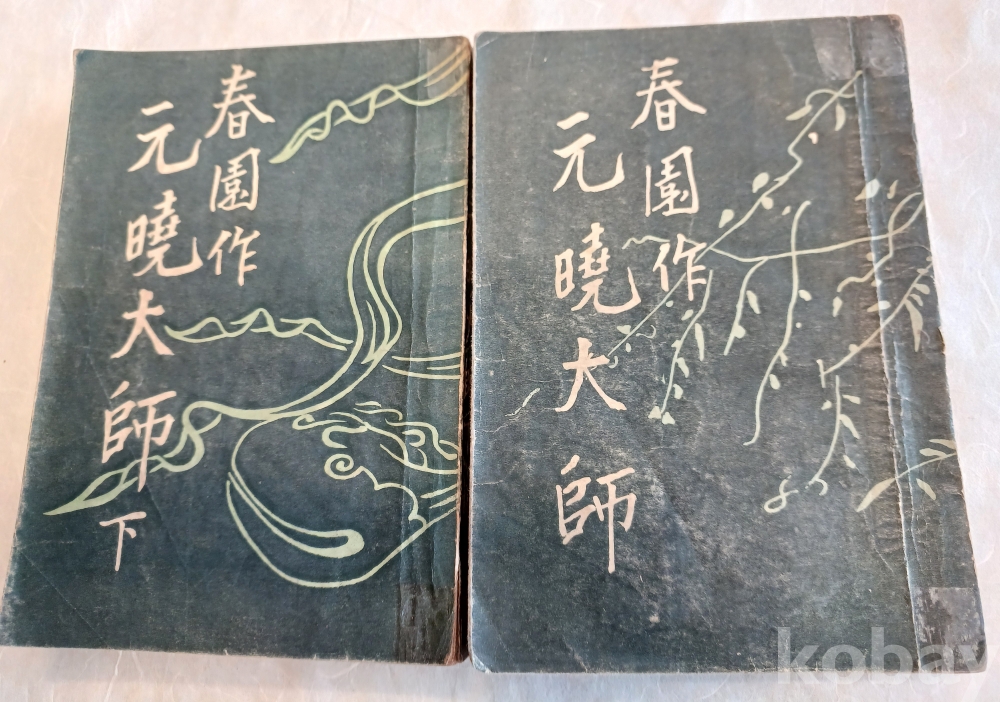 春園作
元曉大師
春園作
元曉大師下
kobay